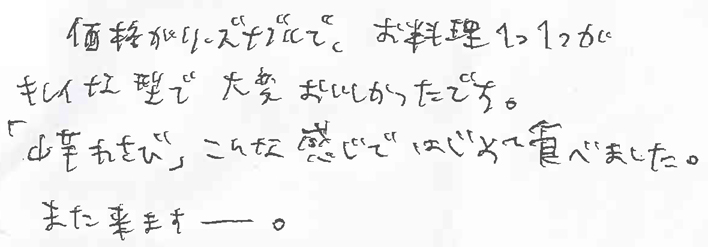 価格がリーズナブルで、お料理1つ1つが
キレイな型で大変おいしかったです。
「山芋わさび」こんな感じではじめて食べました。
また来ますー。